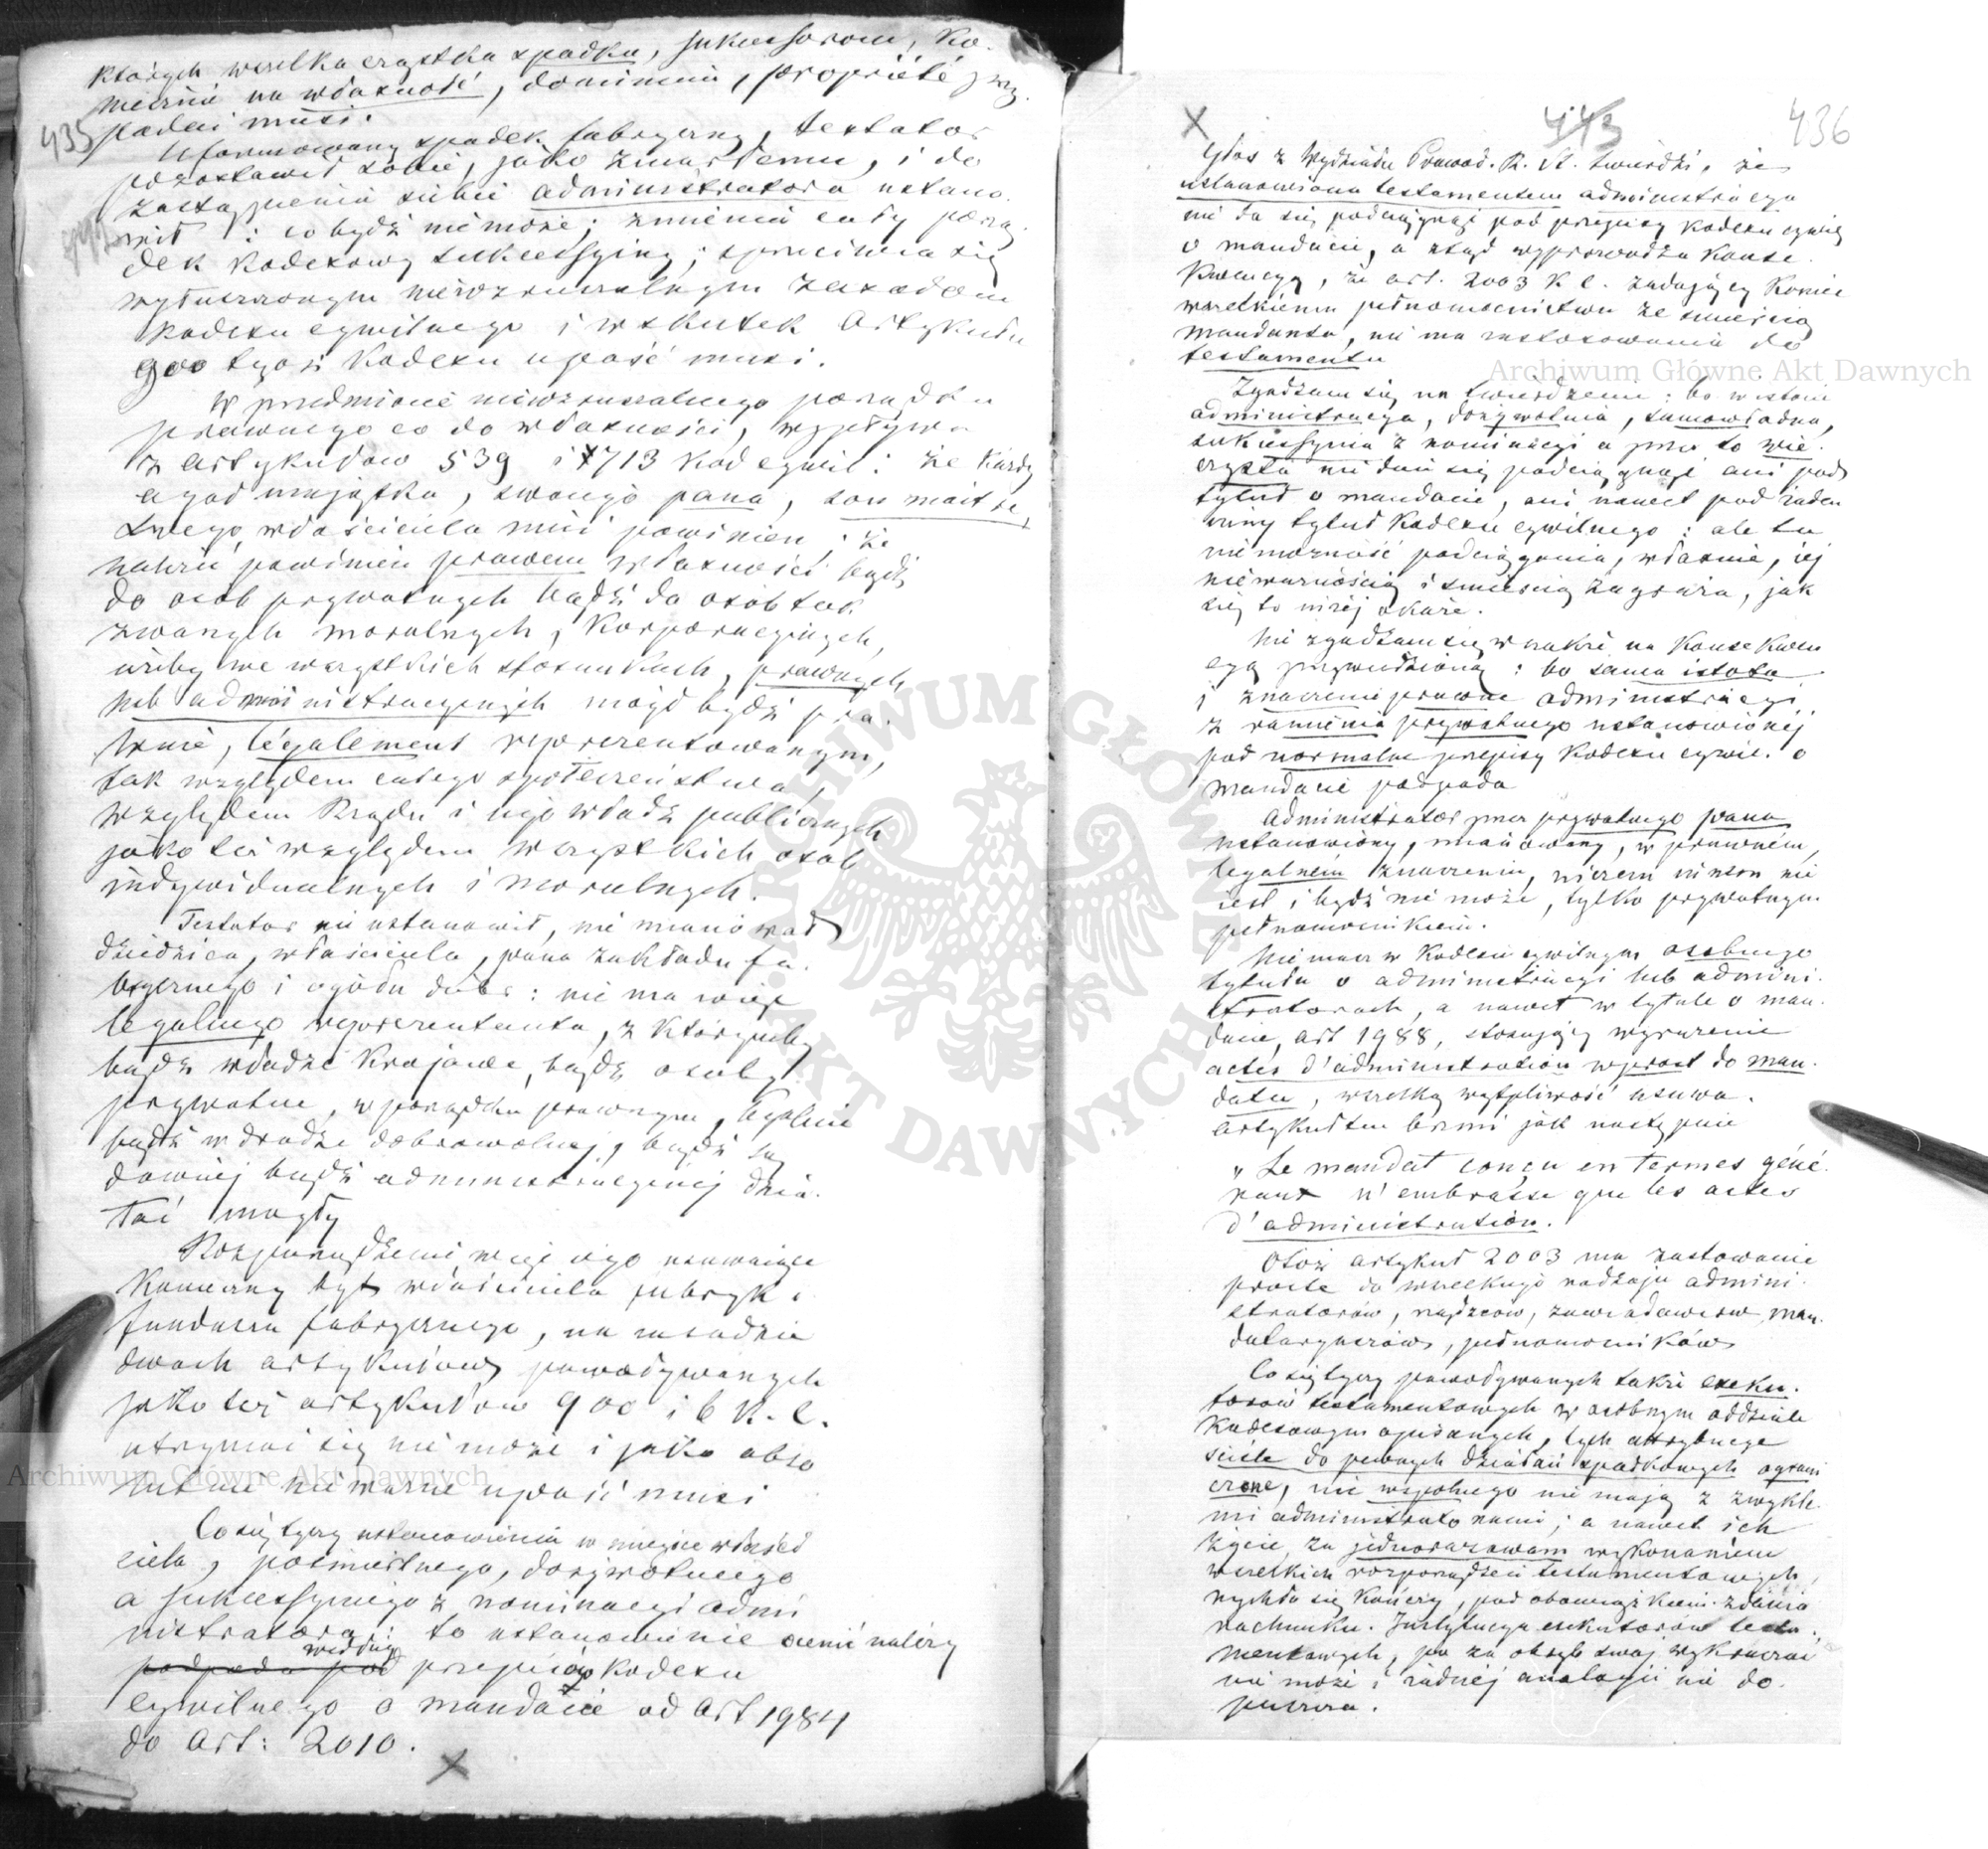 których wszelka cząstka spadku, sukcessorom, ko-
niecznie na własność, dominium, propriété przy-
padać musi.
435
Uformowany spadek fabryczny, testator
pozostawił sobie, jako zmarłemu, i do
zastąpienia siebie administratora ustano-
wił : co bydź nie może; zmienia cały porzą-
dek kodexowy sukcessyiny; sprzeciwia się
wytłuszczonym niewzruszalnym zasadom
kodexu cywilnego i w skutek Artykułu
900 tegoż Kodexu upaść musi.
W przedmiocie niewzruszalnego porządku
prawnego co do własności, wypływa
z Artykułów 539 i 713 Kod cywil: że każdy
ogół majątku, swoiego pana, son maitre,
swego właściciela mieć powinien; że
należeć powinien prawem własności bądź
do osób prywatnych bądź do osób tak
zwanych moralnych, korporacyinych,
ażeby we wszystkich stosunkach, prawnych
lub administracyinych mógł bydź pra-
wnie, légalement reprezentowanym,
tak względem całego społeczeństwa,
względem Rządu i iego władz publicznych
jako też względem wszystkich osób
indywidualnych i moralnych.
Testator nie ustanowił, nie mianował
dziedzica, właściciela, pana zakładu fa-
brycznego i ogółu dóbr: nie ma więc
legalnego reprezentanta, z którymby
bądź władze krajowe, bądź osoby
prywatne, w porządku prawnym, legalnie
bądź w drodze dobrowolnej, bądź są-
downiej bądź administracyinej dzia-
łać mogły
Rozporządzenie więc iego usuwaiące
konieczny byt właściciela fabryk i
funduszu fabrycznego, na zasadzie
dwóch artykułów powoływanych
jako też artykułów 900 i 6 K. C.
utrzymać się nie może i jako abso
lutnie nieważne upaść musi
Co się tyczy ustanowienia w miejsce właści
ciela, pośmiertnego, dożywotniego
a sukcessyinego z nominacyi admi
nistratora: to ustanowienie ocenić należy
według
podpada pod przepisów kodexu
cywilnego o mandacie od Art 1984
do Art: 2010.
X
X
443
436
Głos z Wydziału Prawod. R. A. twierdzi, że
ustanowiona testamentem administracya
nie da się podciągnąć pod przepisy kodexu cywil
o mandacie, a ztąd wyprowadza konse-
kwencyą, że art. 2003 K C. zadający koniec
wszelkiemu pełnomocnictwu ze śmiercią
mandanta, nie ma zastosowania do
testamentu
Zgadzam się na twierdzenie: bo w istocie
administracya, dożywotnia, samowładna,
sukcessyina z nominacyi a przez to wie-
czysta nie daie się podciągnąć ani pod
tytuł o mandacie, ani nawet pod żaden
inny tytuł kodexu cywilnego : ale ta
niemożność podciągania, właśnie, iej
nieważnością i śmiercią zagraża, jak
się to niżej okaże.
Nie zgadzam się wszakże na konsekwen
cyą przywiedzioną : bo sama istota
i znaczenie prawne administracyi
z ramienia prywatnego ustanowionej
pod normalne przepisy kodexu cywil. o
mandacie podpada
Administrator przez prywatnego pana
ustanowiony, mianowany, w prawném,
legalném znaczeniu, niczem innem nie
iest i bydź nie może, tylko prywatnym
pełnomocnikiem.
Nie masz w Kodexie cywilnym osobnego
tytułu o administracyi lub admini-
stratorach, a nawet w tytule o man-
dacie, art 1988, stosujący wyrażenie
actes d'administration wprost do man-
datu, wszelką wątpliwość usuwa.
Artykuł ten brzmi jak następuie
„Le mandat conçu en termes géné-
raux n'embrasse que les actes
d'administration.
Otóż artykuł 2003 ma zastowanie
proste do wszelkiego rodzaju admini-
stratorów, rządzców, zawiadowców, man-
dataryuszów, pełnomocników
Co się tyczy powoływanych także exeku-
torów testamentowych w osobnym oddziale
kodexowym opisanych, tych attrybucye
ściśle do pewnych działań spadkowych ograni
czone, nic wspólnego nie mają z zwykłe-
mi administratorami; a nawet ich
życie, za jednorazowem wykonaniem
wszelkich rozporządzeń testamentowych,
rychło się kończy, pod obowiązkiem zdania
rachunku. Instytucya exekutorów testa-
mentowych, po za obręb swój wykraczać
nie może i żadnéj analogii nie do-
puszcza.
Archiwum Główne Akt Dawnych
Archiwum Główne Akt Dawnych
ARCHIWUM GŁÓWNE AKT DAWNYCH